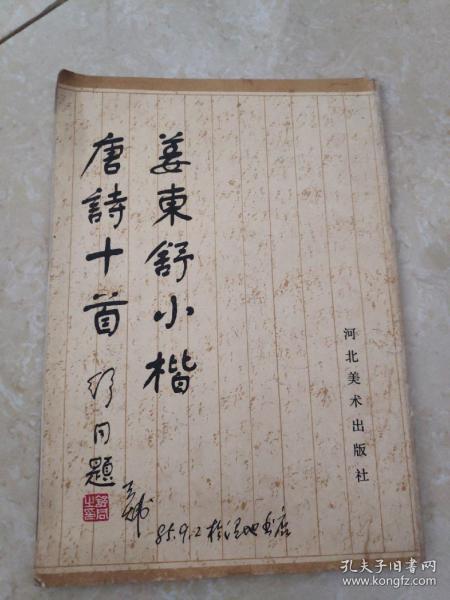 姜東舒小楷
唐詩十首
舒同題
河北美术出版社
85.9.2
孔夫子旧书网
www.kongfz.com